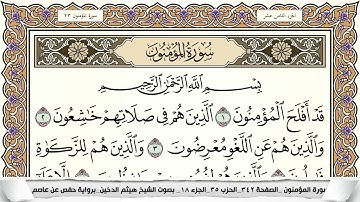 الجزء الثامن عشر
سورة المؤمنون ٢٣
سُورَةُ المُؤْمِنُونَ
بِسْمِ اللَّهِ الرَّحْمَٰنِ الرَّحِيمِ
قَدْ أَفْلَحَ الْمُؤْمِنُونَ ١ الَّذِينَ هُمْ فِي صَلَاتِهِمْ خَٰشِعُونَ ٢
وَالَّذِينَ هُمْ عَنِ اللَّغْوِ مُعْرِضُونَ ٣ وَالَّذِينَ هُمْ لِلزَّكَوٰةِ
سورة المؤمنون _ الصفحة ٣٤٢_ الحزب ٣٥_ الجزء ١٨_ بصوت الشيخ هيثم الدخين_ برواية حفص عن عاصم